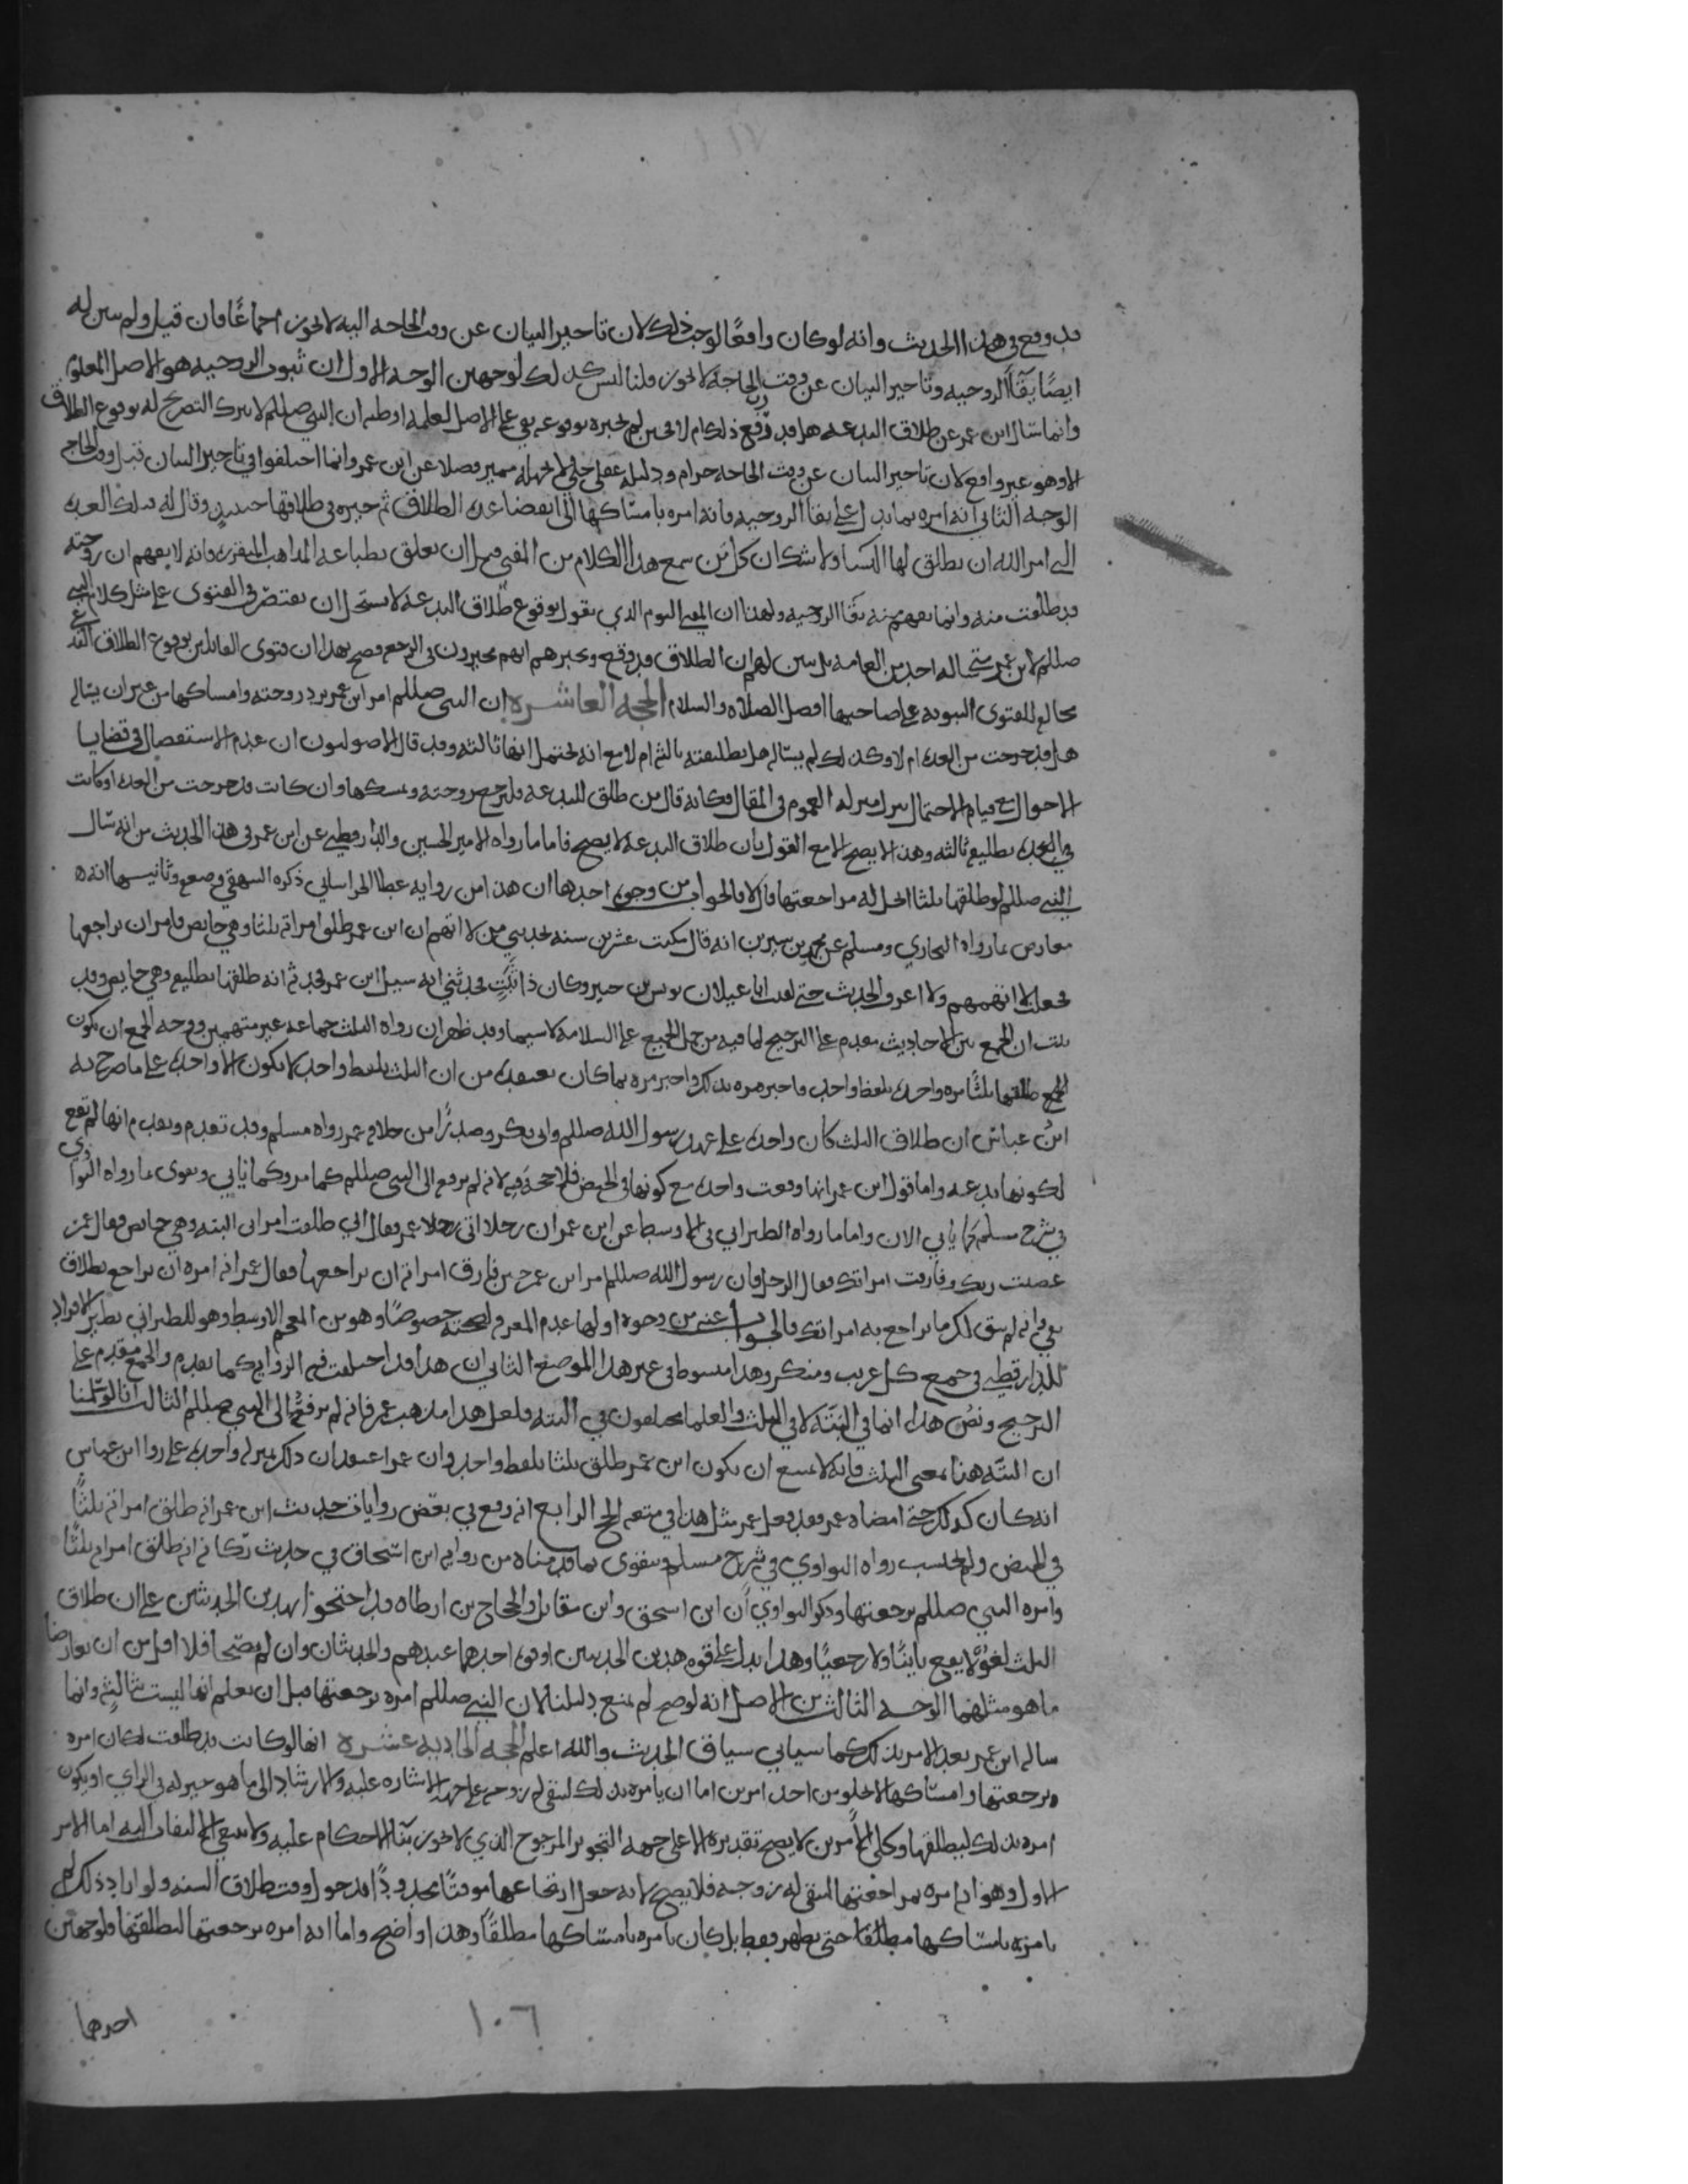 قد وقع في هذا الحديث وانه لو كان واقعًا لوجب ذلك لان تاخير البيان عن وقت الحاجه اليه لا يجوز اجماعًا فان قيل ولم يبين له
ايضًا بقآ الزوجيه وتاخير البيان عن وقت الحاجة لا يجوز قلنا ليس كذلك لوجهين الوجه الاول ان ثبوت الزوجيه هو الاصل المعلوم
وانما سال ابن عمر عن طلاق البدعه هل قد رفع ذلك ام لا فحين لم يخبره بوقوعه بقي على الاصل لعلمه او ظنه ان النبي صللم لا يترك التصريح له بوقوع الطلاق
الا وهو غير واقع لان تاخير البيان عن وقت الحاجه حرام ودليله عقلي جلي لا يجهله مميز فضلا عن ابن عمر وانما اختلفوا في تاخير البيان قبل وقت الحاجه
الوجه الثاني انه امره بما يدل على بقا الزوجيه فانه امره بامساكها الى انقضا عده الطلاق ثم خيره في طلاقها حينئذٍ وقال له فتلك العده
التي امر الله ان يطلق لها النسا ولا شك ان كل من سمع هذا الكلام من المفتي قبل ان يعلق بطباعه المذاهب المتفرقه فانه لا يفهم ان زوجته
قد طلقت منه وانما يفهم منه بقآ الزوجيه ولهذا ان المفتي اليوم الذي يقول بوقوع طلاق البدعه لا يستحل ان يقتصر في الفتوى على مثل كلام النبي
صللم لابن عمر متى ساله احد من العامه بل يبين لهم ان الطلاق قد وقع ويخبرهم انهم مخيرون في الرجعه فصح بهذا ان فتوى القائلين بوقوع الطلاق البدعي
مخالفه للفتوى النبويه على صاحبها افضل الصلاه والسلام الحجه العاشره ان النبي صللم امر ابن عمر برد زوجته وامساكها من غير ان يساله
هل قد خرجت من العده ام لا وكذلك لم يساله هل تطليقته ثالثه ام لا مع انه يحتمل انها ثالثه وقد قال الاصوليون ان عدم الاستفصال في قضايا
الاحوال مع قيام الاحتمال ينزل منزله العموم في المقال فكانه قال من طلق للبدعه فليرتجع زوجته ويمسكها وان كانت قد خرجت من العده او كانت
في العده بطليقه ثالثه وهذا لا يصح الا مع القول بان طلاق البدعه لا يصح فاما ما رواه الامير الحسين والدارقطني عن ابن عمر في هذا الحديث من انه سال
النبي صللم لو طلقها ثلثا ايحل له مراجعتها قال لا فالجواب من وجوه احدها ان هذا من روايه عطا الخراساني ذكره البيهقي وضعفه وثانيها انه
معارض بما رواه البخاري ومسلم عن محمد بن سيرين انه قال مكثت عشرين سنه يحدثني من لا اتهم ان ابن عمر طلق امراته ثلثا وهي حايض فامر ان يراجعها
فجعلت لا اتهمهم ولا اعرف الحديث حتى لقيت ابا غيلان يونس بن جبير وكان ذا ثَبَتٍ فحدثني انه سيل ابن عمر فحدثه انه طلقها تطليقه وهي حايض وقد
ثبت ان الجمع بين الاحاديث مقدم على الترجيح لما فيه من حمل الجميع على السلامه لا سيما وقد ظهر ان رواه الثلث جماعه غير متهمين ووجه الجمع ان يكون
الجمع طلقها ثلثًا مره واحده بلفظ واحد فاخبر مره بذلك واخبر مره بما كان يعتقده من ان الثلث بلفظ واحد لا يكون الا واحده على ما صرح به
ابنُ عباس ان طلاق الثلث كان واحده على عهد رسول الله صللم وابي بكر وصدرًا من خلافه عمر رواه مسلم وقد تقدم ويقدم انها لم تقع
لكونها بدعه واما قول ابن عمر انها وقعت واحده مع كونها في الحيض فلا حجة فيه لانه لم يرفع الى النبي صللم كما مر وكما ياتي ويقوى بما رواه النواوي
في شرح مسلم كما ياتي الان واما ما رواه الطبراني في الاوسط عن ابن عمر ان رجلا اتى عمر فقال اني طلقت امراتي البته وهي حايض فقال عمر
عصيت ربك وفارقت امراتك فقال الرجل فان رسول الله صللم امر ابن عمر حين فارق امراته ان يراجعها فقال عمر انه امره ان يراجع بطلاق
بقي له وانه لم يبق لك ما تراجع به امراتك فالجواب عنه من وجوه اولها عدم المعرفه لصحته خصوصًا وهو من المعجم الاوسط وهو للطبراني نظير الافراد
للدارقطني في جمع كل غريب ومنكر وهذا مبسوط في غير هذا الموضع الثاني ان هذا قد اختلفت فيه الروايه كما تقدم والجمع مقدم على
الترجيح ونصُ هذا انما في البَتّه لا في الثلث والعلما مختلفون في البته فلعل هذا مذهب عمر فانه لم يرفعه الى النبي صللم الثالث انا لو سلمنا
ان البتّه هنا بمعنى الثلث فانه لا يمنع ان يكون ابن عمر طلق ثلثا بلفظ واحد وان عمر اعتقد ان ذلك بمنزله واحده على روا ابن عباس
انه كان كذلك حتى امضاه عمر فقد فعل عمر مثل هذا في متعه الحج الرابع انه وقع في بعض روايات حديث ابن عمر انه طلق امراته ثلثًا
في الحيض ولم يحتسب رواه النواوي في شرح مسلم ويتقوى بما قدمناه من روايه ابن اسحاق في حديث ركانه انه طلق امراته ثلثًا
وامره النبي صللم برجعتها وذكر النواوي أن ابن اسحق وابن مقاتل والحجاج بن ارطاه قد احتجوا بهذين الحديثين على ان طلاق
الثلث لغوٌ لا يقع بايّنًا ولا رجعيًا وهذا يدل على قوه هذين الحديثين او قوه احدهما عندهم والحديثان وان لم يصّحا فلا اقل من ان يعارضا
ما هو مثلهما الوجه الثالث من الاصل انه لو صح لم يمنع دليلنا لان النبي صللم امره برجعتها قبل ان يعلم انها ليست ثالثه وانما
ساله ابن عمر بعد الامر بذلك كما سياتي سياق الحديث والله اعلم الحجه الحاديه عشره انها لو كانت قد طلقت لكان امره
برجعتها وامساكها لا يخلو من احد امرين اما ان يامره بذلك لتبقى له زوجه على جهه الاشاره عليه والارشاد الى ما هو خير له في الراي او يكون
امره بذلك ليطلقها وكلى الأمرين لا يصح تقديره الا على جهه التجويز المرجوح الذي لا يجوز بنآ الاحكام عليه ولا ينبغي الالتفات اليه اما الامر
الاول وهو انه امره بمراجعتها لتبقى له زوجه فلا يصح لانه جعل ارتجاعها موقتًا محدودًا قد حول وقت طلاق السنه ولو اراد ذلك لم
يامره بامساكها مطلقا حتى تطهر فقط بل كان يامره بامساكها مطلقًا وهذا واضح واما انه امره برجعتها ليطلقها فلوجهين
احدهما
١٠٦